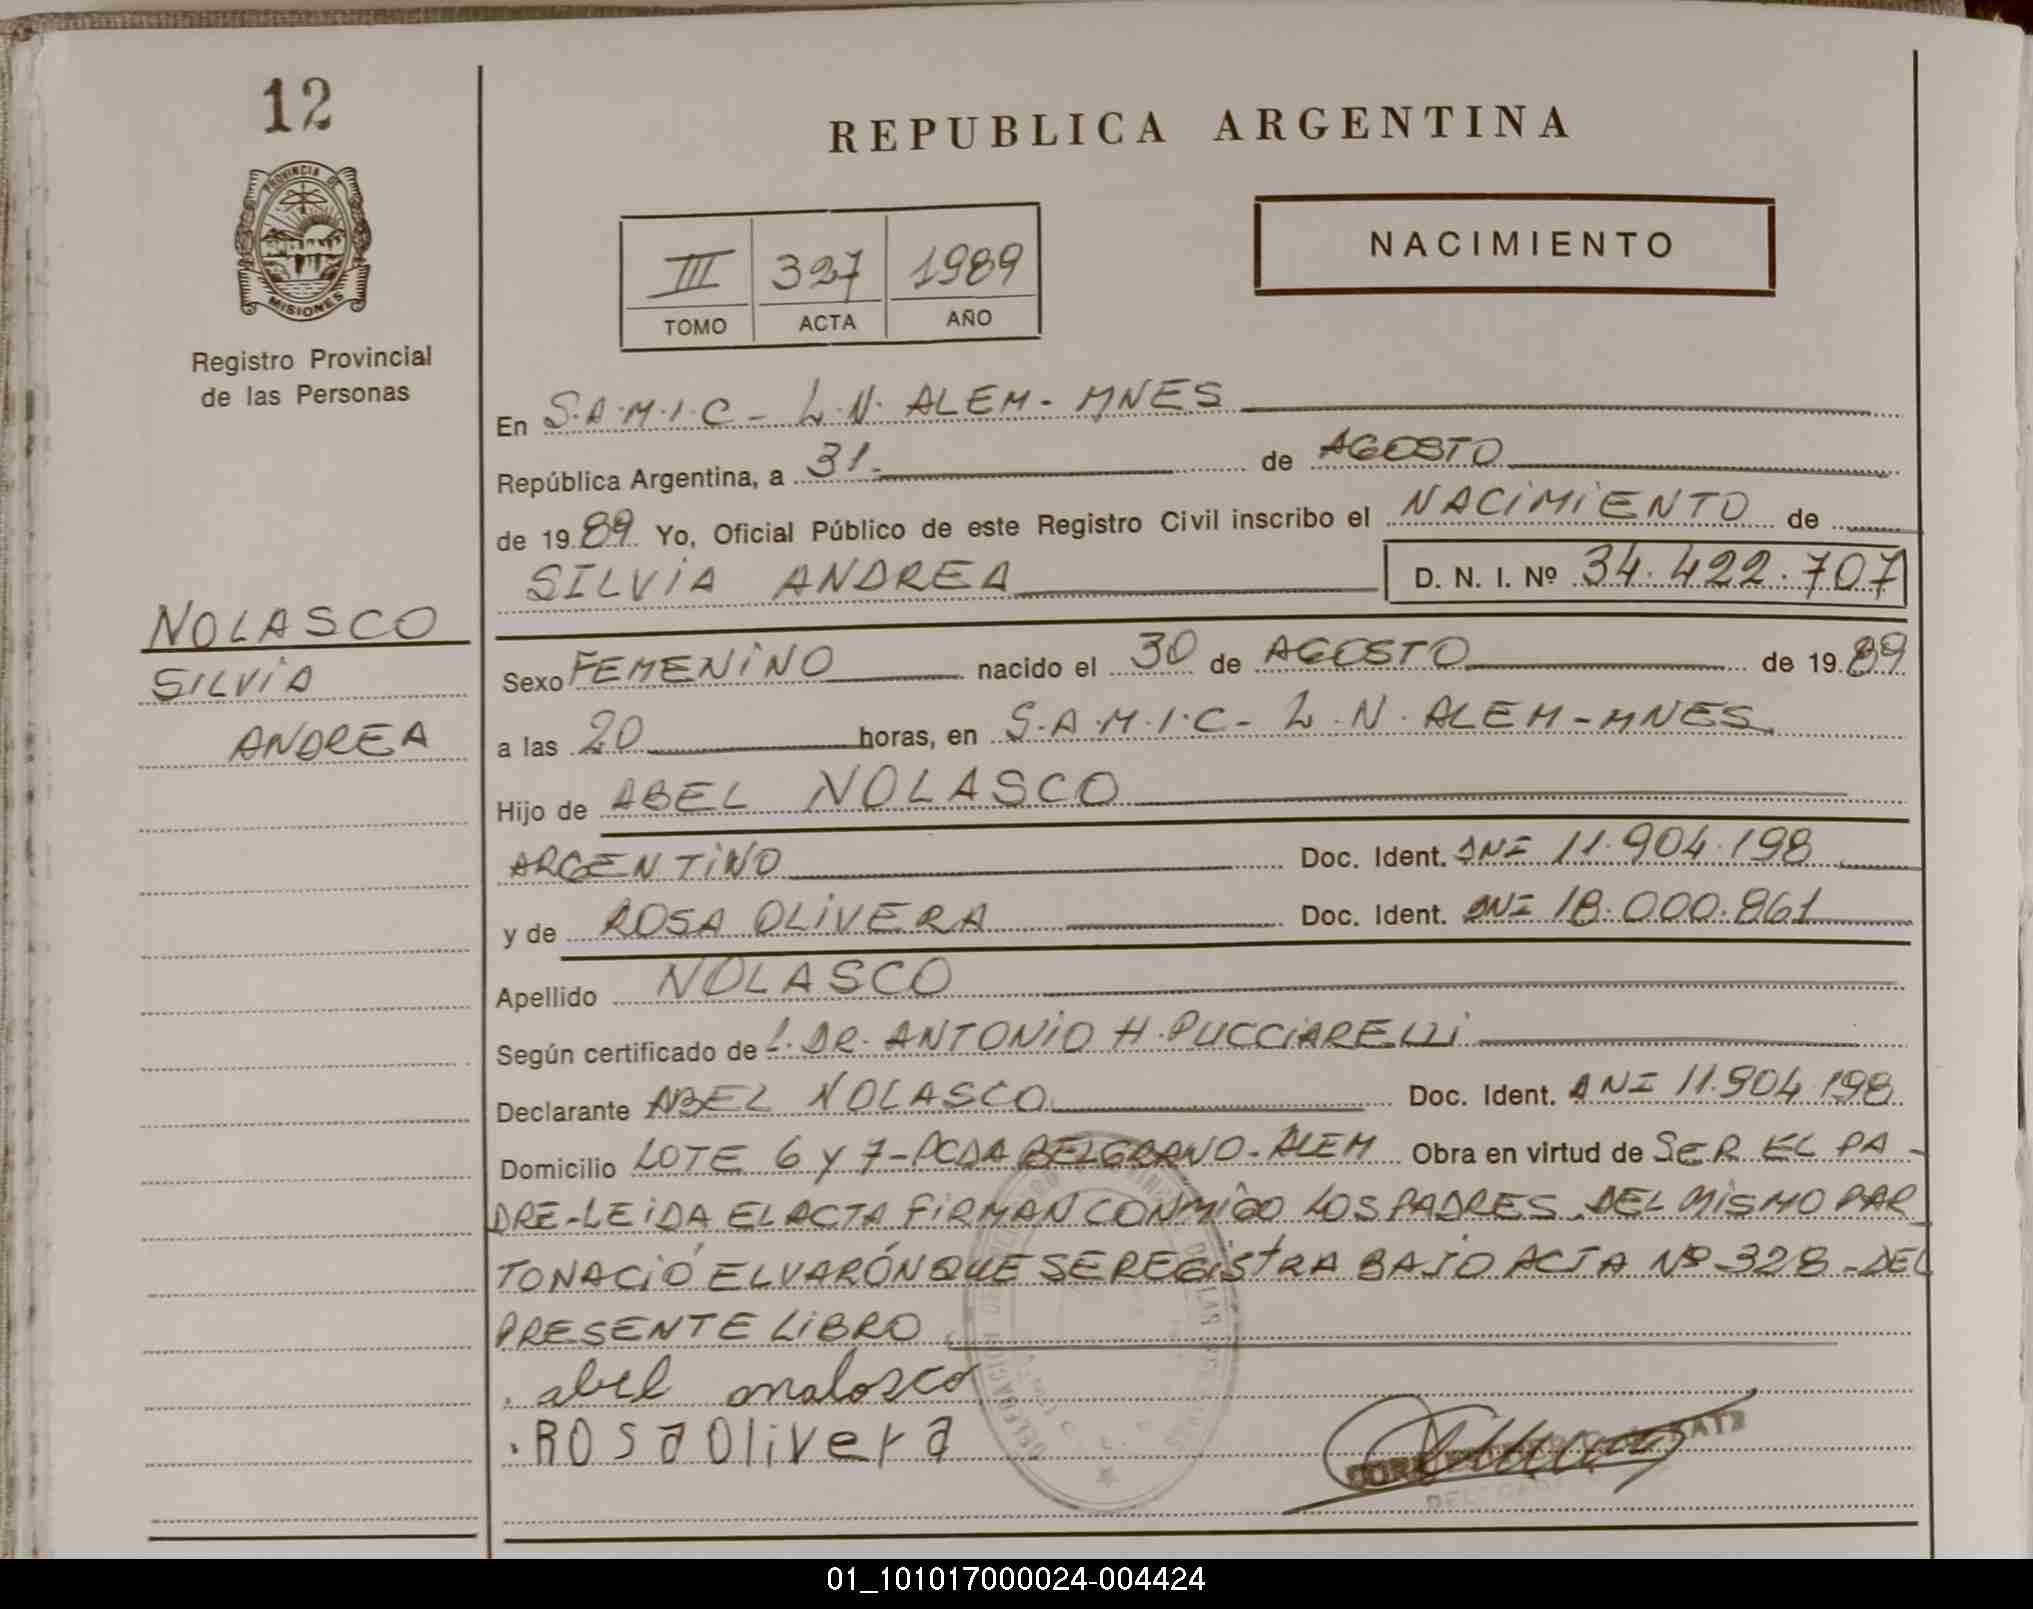 12
PROVINCIA DE
MISIONES
Registro Provincial
de las Personas
NOLASCO
SILVIA
ANDREA
REPUBLICA ARGENTINA
NACIMIENTO
III 327 1989
TOMO ACTA AÑO
En S.A.M.I.C - L.N. ALEM - MNES
República Argentina, a 31 de AGOSTO
de 1989 Yo, Oficial Público de este Registro Civil inscribo el NACIMIENTO de
SILVIA ANDREA D. N. I. Nº 34.422.707
Sexo FEMENINO nacido el 30 de AGOSTO de 1989
a las 20 horas, en S.A.M.I.C - L.N. ALEM - MNES
Hijo de ABEL NOLASCO
ARGENTINO Doc. Ident. DNI 11.904.198
y de ROSA OLIVERA Doc. Ident. DNI 18.000.861
Apellido NOLASCO
Según certificado de DR. ANTONIO H. PUCCIARELLI
Declarante ABEL NOLASCO Doc. Ident. DNI 11.904.198
Domicilio LOTE 6 y 7 - PCDA BELGRANO - ALEM Obra en virtud de SER EL PA-
DRE - LEIDA EL ACTA FIRMAN CONMIGO LOS PADRES. DEL MISMO PAR
TO NACIÓ EL VARÓN QUE SE REGISTRA BAJO ACTA Nº 328 - DEL
PRESENTE LIBRO
abel nolasco
ROSa Olivera
01_101017000024-004424